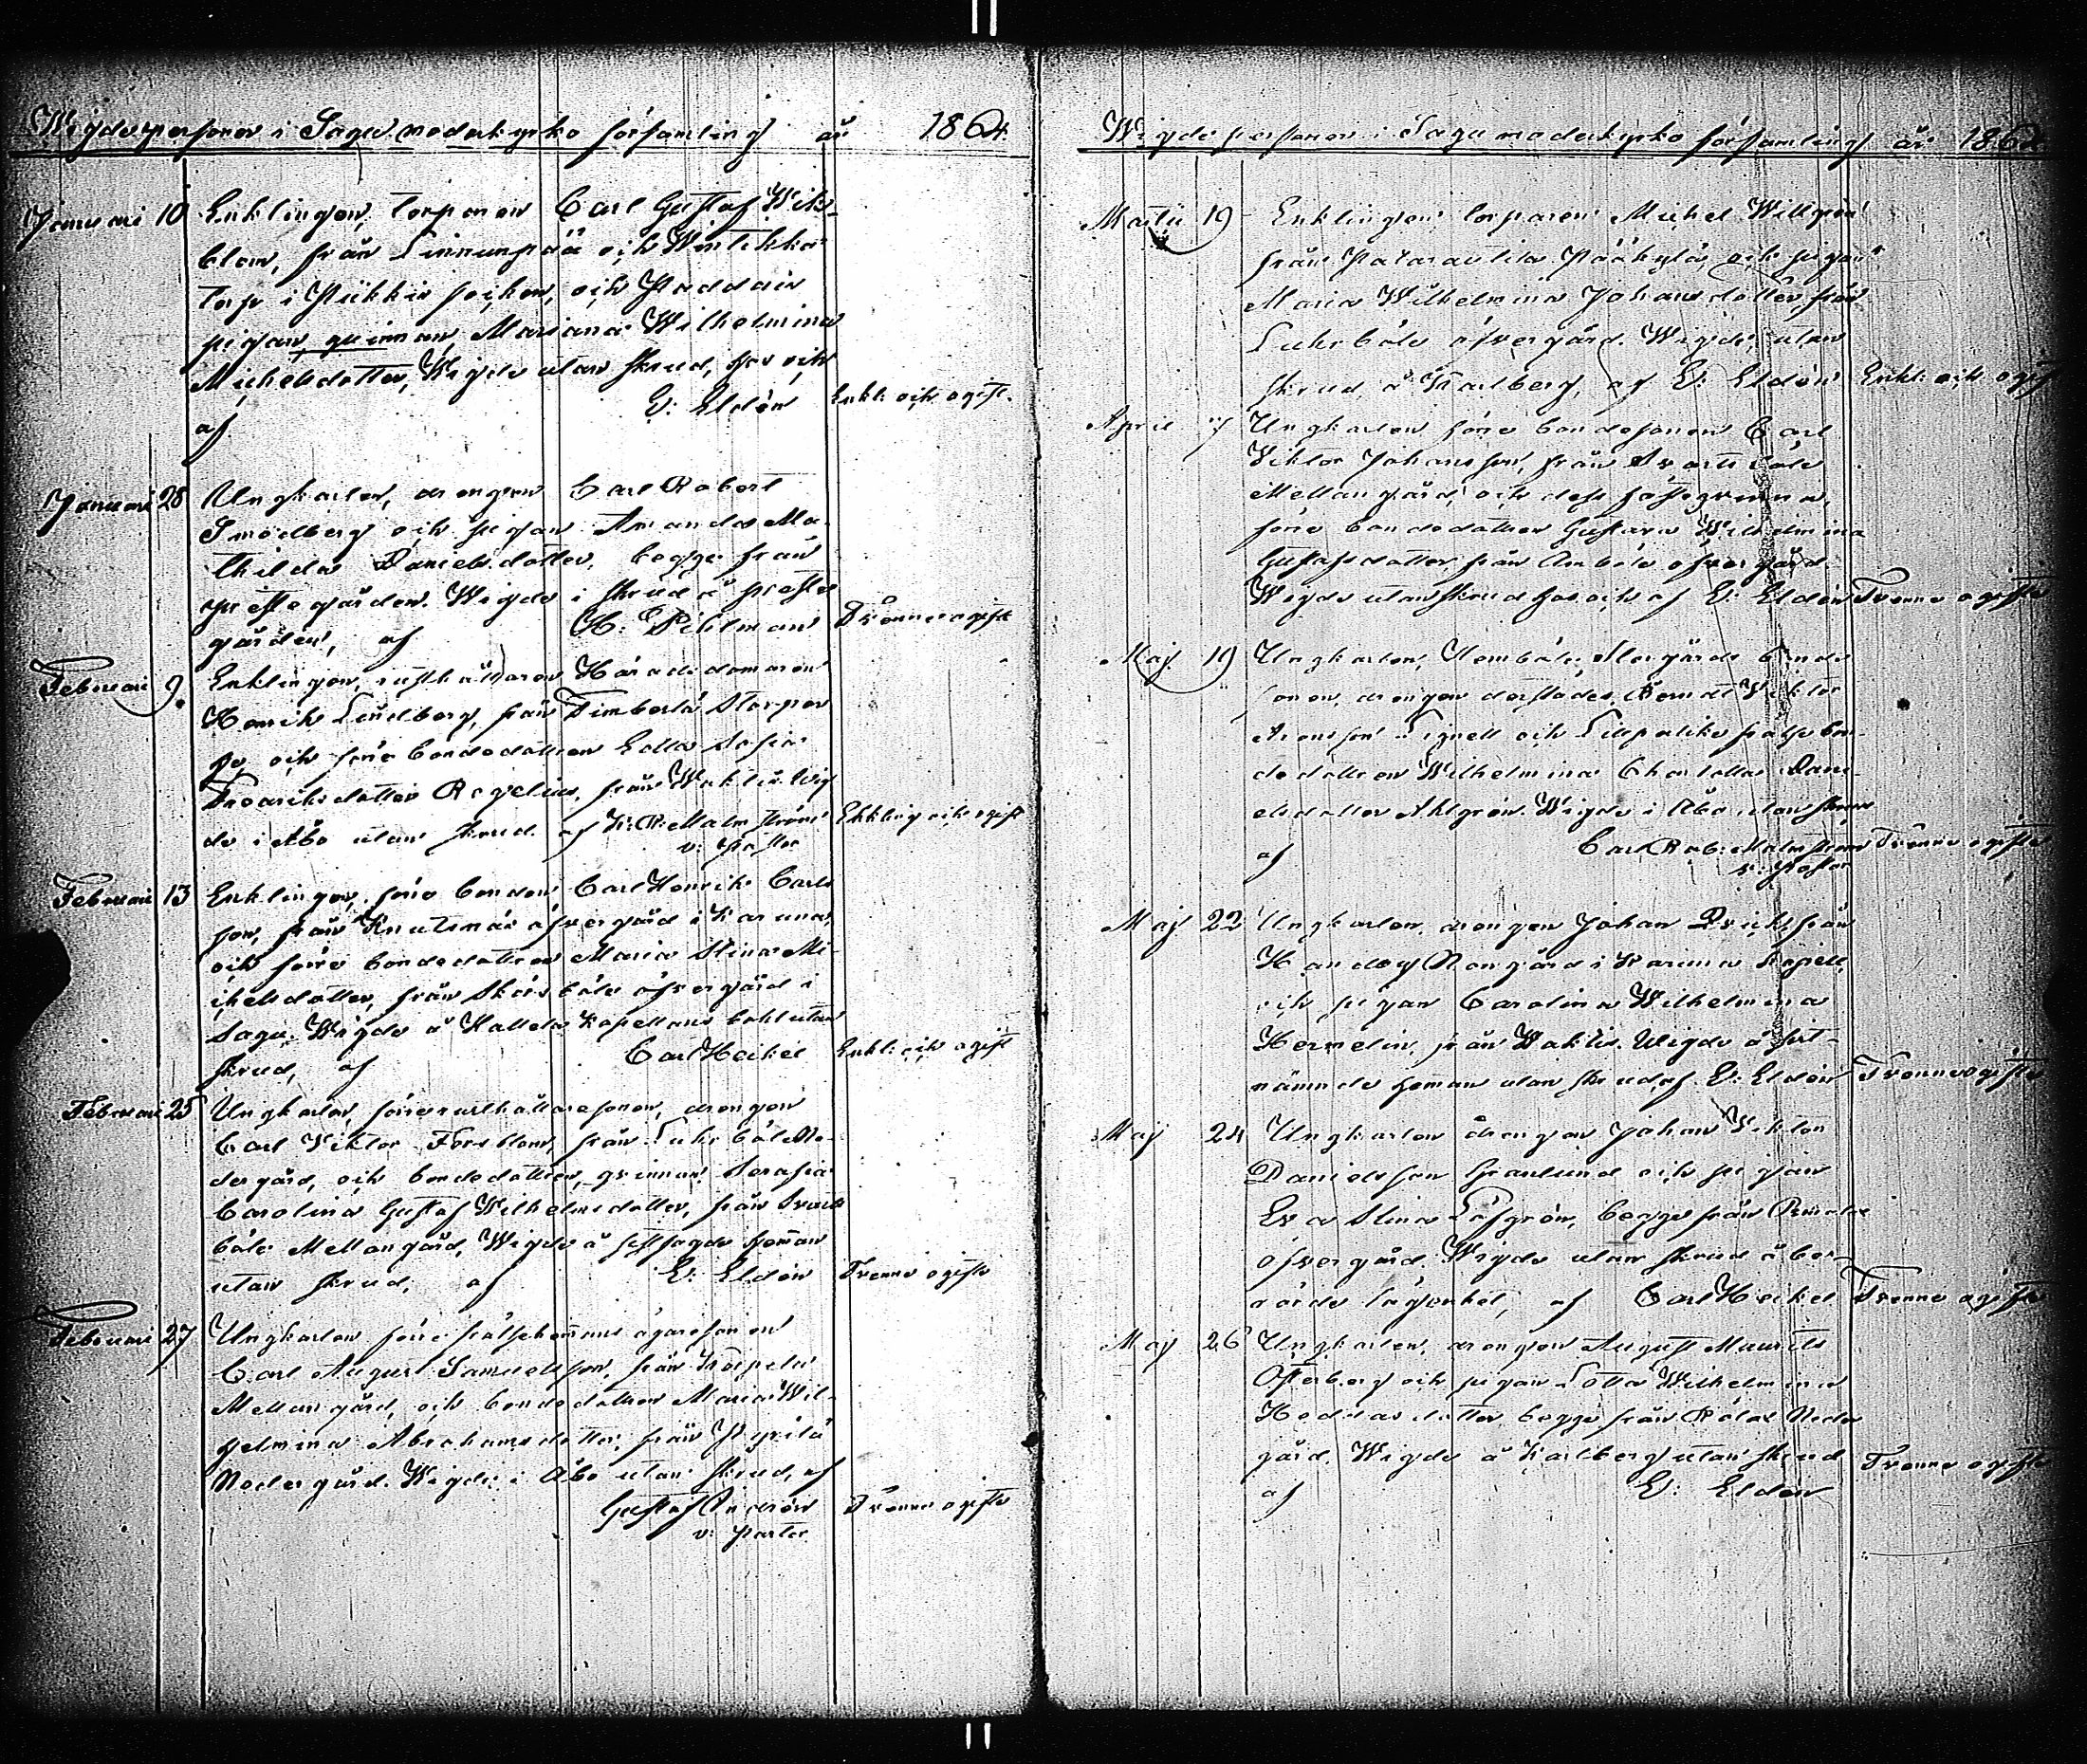 Wigde personer i Sagu moderkyrko församling år 1864.
Januari 10 Enklingen, torparen Carl Gustaf Wik-
blom, från Linnunpää och Wintikka
torp i Pikkis socken, och Paddais
pigan, qvinnan, Mariana Wilhelmina
Michelsdotter, Wigde utan skrud, hos och
af E: Eldén Enkl: och ogift.
Januari 28 Ungkarlen, drengen Carl Robert
Smedberg och pigan Amanda Ma-
thilda Danielsdotter, begge från
prestegården. Wigde i skrud å preste
gården, af H: Pihlman Tvänne ogift
Februari 9. Enklingen, rusthållaren Häradsdomaren
Henrik Lindberg, från Timberlä Storper
pe, och förre bondedottren Lotta Sofia
Fredriksdotter Rogelius, från Waktis. Wig
de i Åbo utan skrud. af K: R: Malmström Enkling och ogift
v: pastor
Februari 13 Enklingen, förre bonden Carl Henrik Carls
son, från Knutsnäs öfvergård i Karuna,
och förre bondedottren Maria Stina Mi-
chelsdotter, från Skärsböle öfvergård i
Sagu. Wigde å Kallela Kapellans bohl utan
skrud, af Carl Heikel Enkl: och ogift
Februari 25 Ungkarlen, förre rusthållaresonen, drengen
Carl Viktor Forsblom, från Luhrböle Ne-
dergård, och bondedottren, qvinnan, Serafia
Carolina Gustaf Wilhelmsdotter, från Svarts
böle Mellangård, Wigde å sistsagde hem̄an
utan skrud, af E: Eldén Tvenne ogifte
Februari 27 Ungkarlen förre frälsehem̄ans ägaresonen
Carl August Samuelsson, från Korpela
Mellangård, och bondedottren Maria Wil-
helmina Abrahamsdotter, från Pyrilä
Nedergård. Wigde i Åbo utan skrud, af
Gustaf Andrén Tvenne ogifte
v: pastor.
Wigde personer i Sagu moderkyrko församling år 1864.
Martii 19 Enklingen, torparen Michel Willgrén
från Patarautila Pääkylä, och pigan
Maria Wilhelmina Johansdotter från
Luhrböle öfvergård. Wigde, utan
skrud, å Karlberg, af E: Eldén Enkl: och ogift
April 7 Ungkarlen förre bondesonen Carl
Viktor Johansson, från Svartsböle
Mellangård, och dess fästeqvinna,
förre bondedottren Gustava Wilhelmina
Gustafsdotter, från öfvergård.
Wigde utan skrud hos och af E: Eldén Tvenne ogifte
Maj 19 Ungkarlen, Storgårds bonde
sonen, drengen derstädes, Berndt Viktor
Aronsson Lignell och frälsebon-
dedottren Wilhelmina Charlotta Dani-
elsdotter Ahlgrén. Wigde i Åbo utan skrud
af Carl Rob: Malmström Tvenne ogifte
v: Pastor
Maj 22 Ungkarlen, drengen Johan Qvick från
Norrgård i Karuna kapell,
och pigan Carolina Wilhelmina
Hermelin, från Waktis. Wigde å sist-
nämnde hem̄an utan skrud, af E: Eldén Tvenne ogifte
Maj 24 Ungkarlen drengen Johan Viktor
Danielsson Granlund och pigan
Eva Stina Löfgrén, begge från
öfvergård. Wigde utan skrud å be-
rörde lägenhet, af Carl Heikel Tvenne ogifte
Maj 26 Ungkarlen, drengen August Maurits
Österberg och pigan Lotta Wilhelmina
Hedviasdotter, begge från Neder
gård, Wigde å Karlberg utan skrud
af E: Eldén Tvenne ogifte